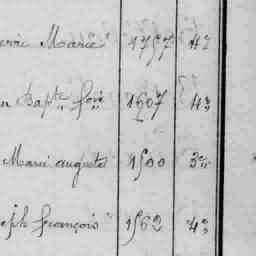 erre Marie 1757 42
n Bapte fois 1607 43
Marie auguste 1500 3
eph françois 1562 43